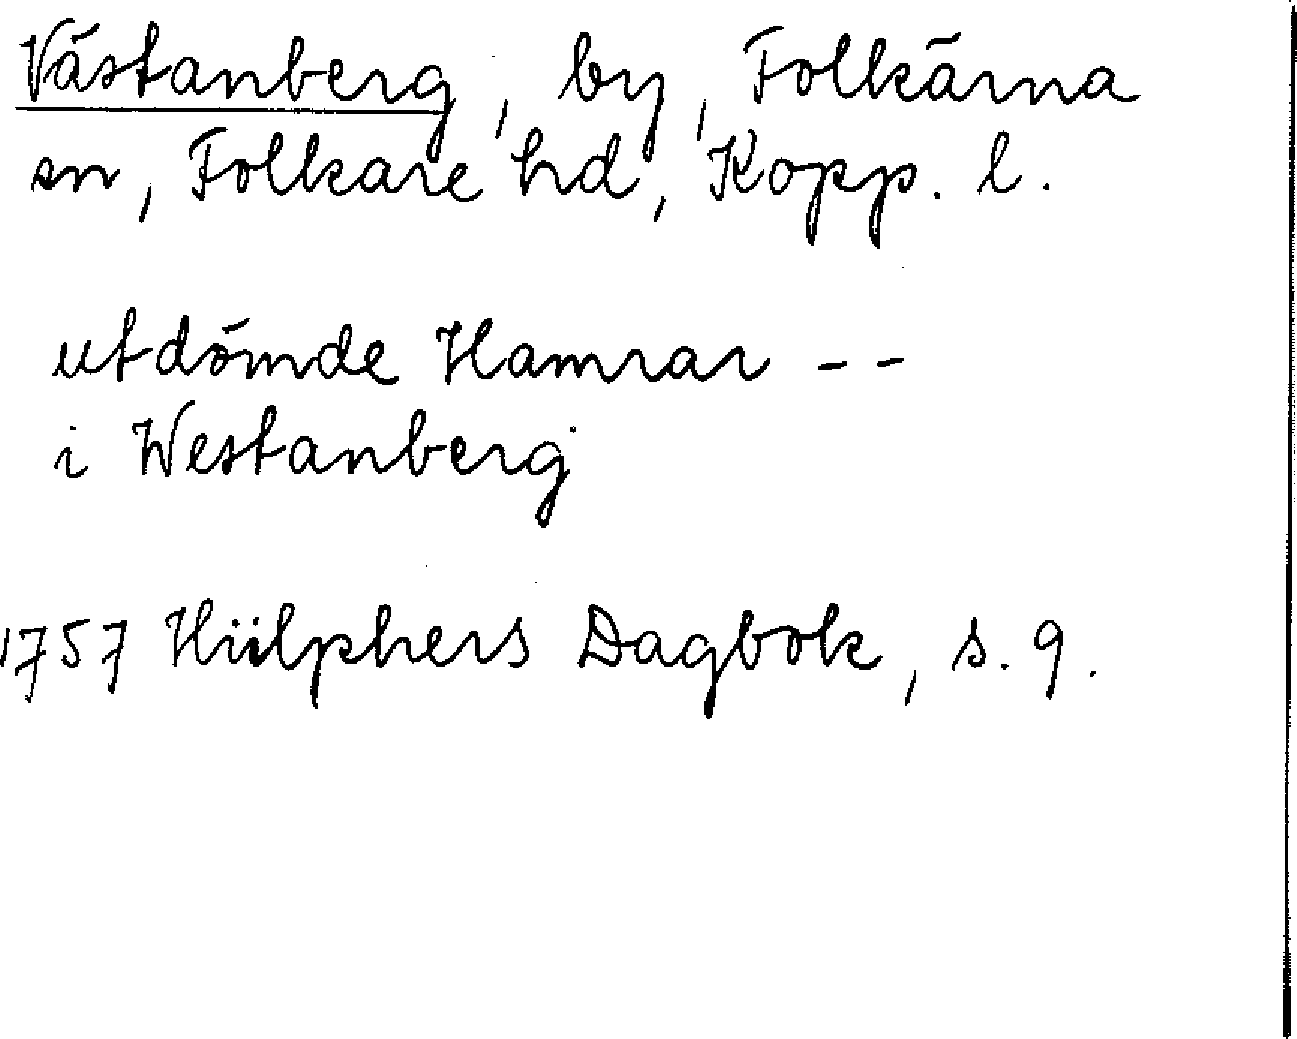 Västanberg, by, Folkärna
sn, Folkare hd, Kopp. l.
utdömde Hamrar - -
i Westanberg
1757 Hülphers Dagbok, s. 9.